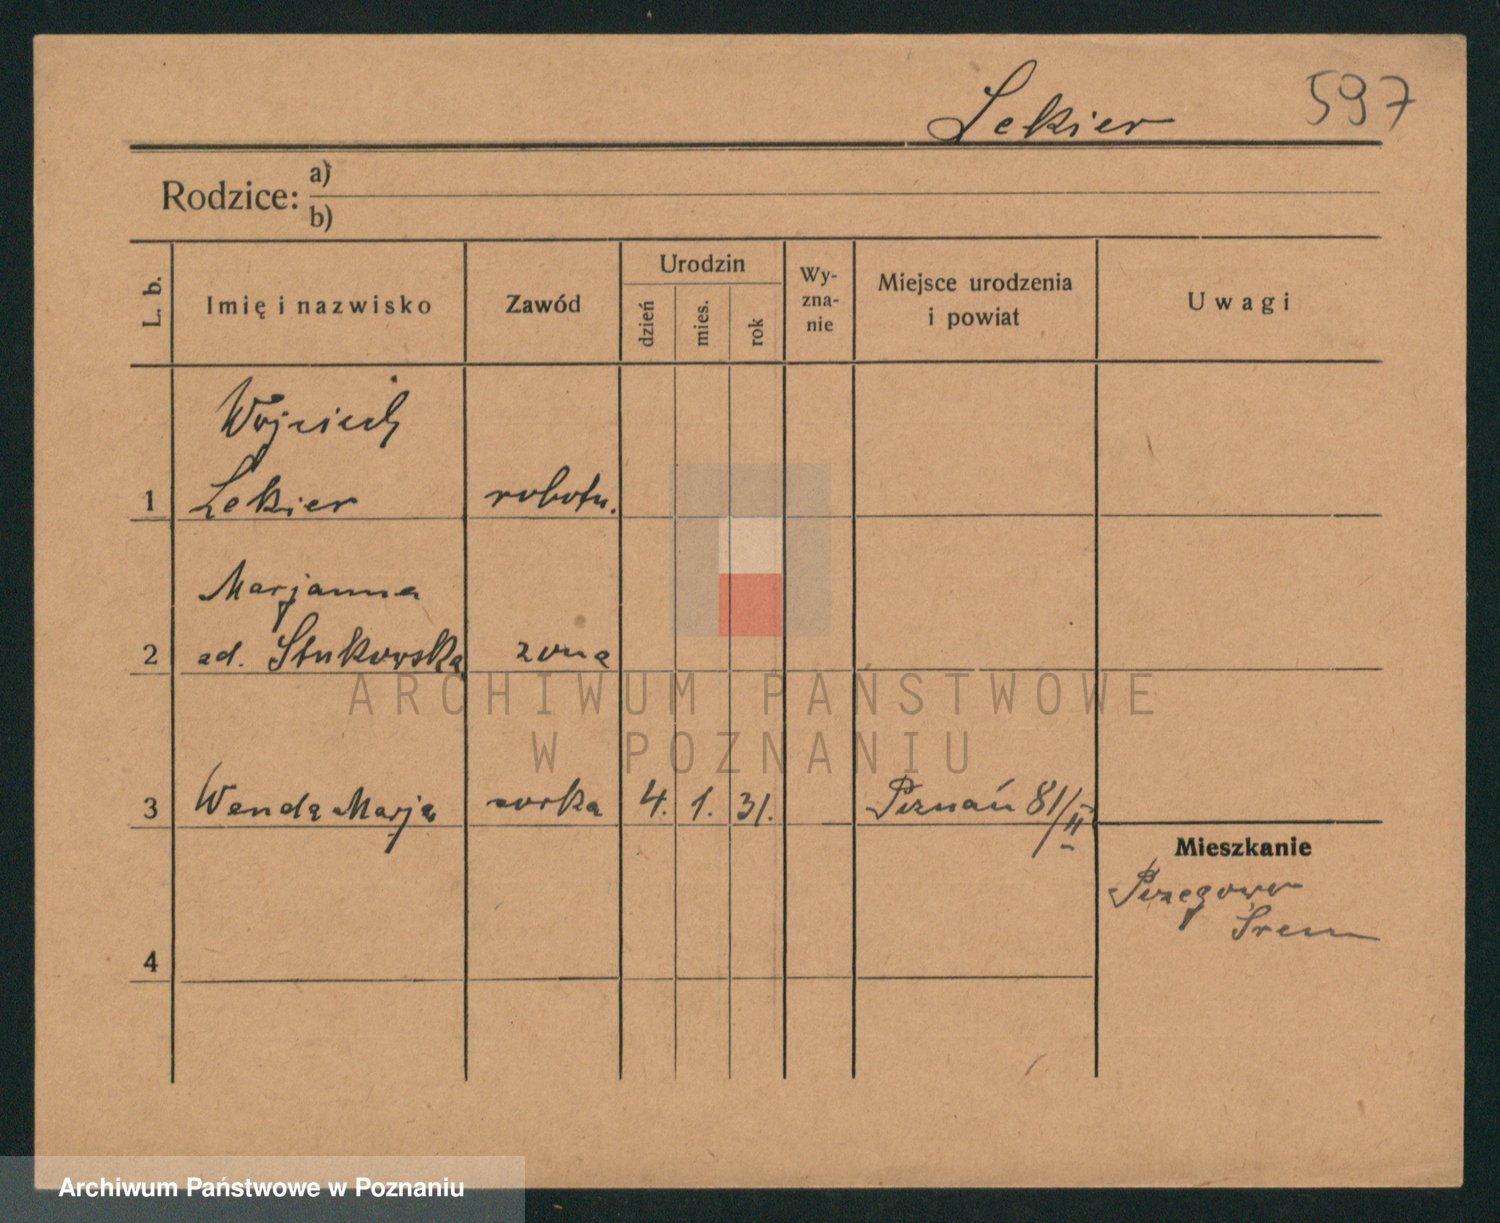 Lekier
597
Rodzice: a)
b)
L. b.
Imię i nazwisko
Zawód
Urodzin
dzień
mies.
rok
Wy-
zna-
nie
Miejsce urodzenia
i powiat
Uwagi
Wojciech
1 Lekier robotn.
Marjanna
2 zd. Stukowska żona
3 Wanda Marja córka 4. 1. 31. Poznań 81/II
Mieszkanie
Śrem
4
ARCHIWUM PAŃSTWOWE
W POZNANIU
Archiwum Państwowe w Poznaniu